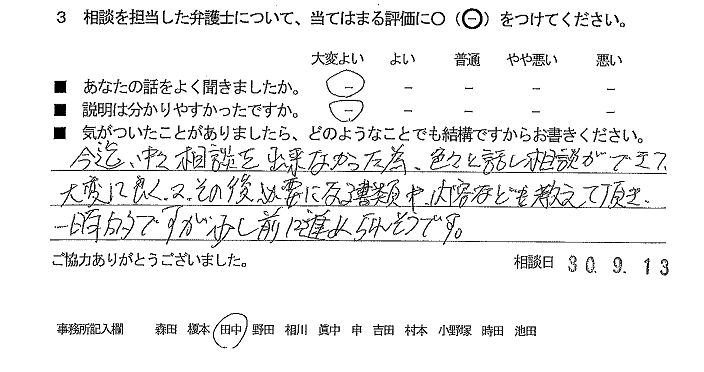 3 相談を担当した弁護士について、当てはまる評価に○（㊀）をつけてください。
大変よい よい 普通 やや悪い 悪い
■ あなたの話をよく聞きましたか。 － － － － －
■ 説明は分かりやすかったですか。 － － － － －
■ 気がついたことがありましたら、どのようなことでも結構ですからお書きください。
今迄、中々相談を出来なかった為、色々と話し相談ができて
大変に良く、又、その後必要になる書類や、内容なども教えて頂き、
一時的ですが少し前に進められそうです。
ご協力ありがとうございました。 相談日 30.9.13
事務所記入欄 森田 榎本 田中 野田 相川 眞中 申 吉田 村本 小野塚 時田 池田